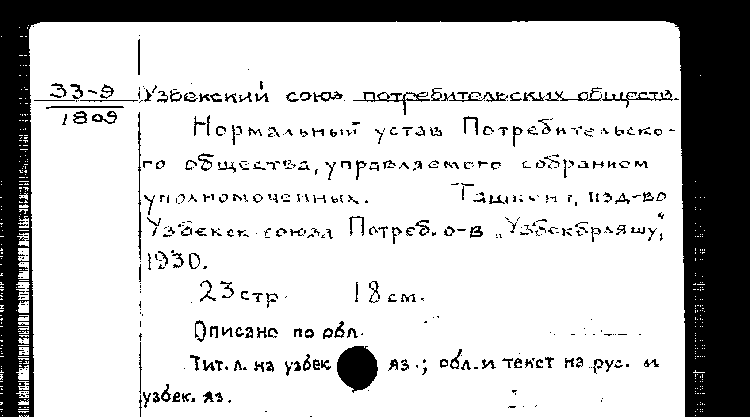 33-9
1809
Узбекский союз потребительских обществ.
Нормальный устав Потребительско-
го общества, управляемого собранием
уполномоченных. Ташкент, изд-во
Узбекск. союза Потреб. о-в „Узбекбрляшу“,
1930.
23 стр. 18 см.
Описано по обл.
Тит. л. на узбек яз.; обл. и текст на рус. и
узбек. яз.